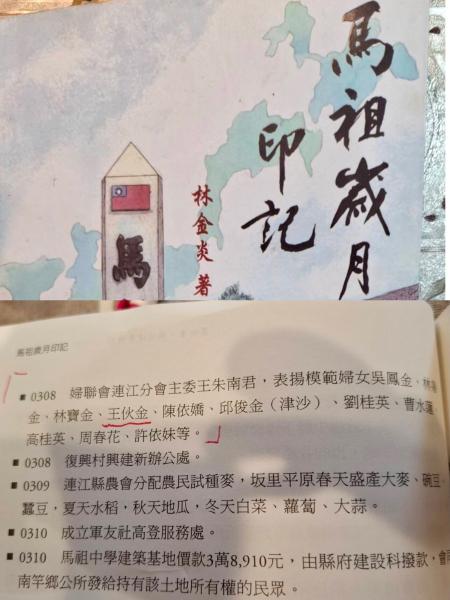 馬祖歲月
印記
林金炎 著
馬
馬祖歲月印記
■ 0308 婦聯會連江分會主委王朱南君，表揚模範婦女吳鳳金、林
金、林寶金、王伙金、陳依嬌、邱俊金（津沙）、劉桂英、曹水蓮、
高桂英、周春花、許依妹等。
■ 0308 復興村興建新辦公處。
■ 0309 連江縣農會分配農民試種麥，坂里平原春天盛產大麥、碗豆、
蠶豆，夏天水稻，秋天地瓜，冬天白菜、蘿蔔、大蒜。
■ 0310 成立軍友社高登服務處。
■ 0310 馬祖中學建築基地價款3萬8,910元，由縣府建設科撥款，會
南竿鄉公所發給持有該土地所有權的民眾。